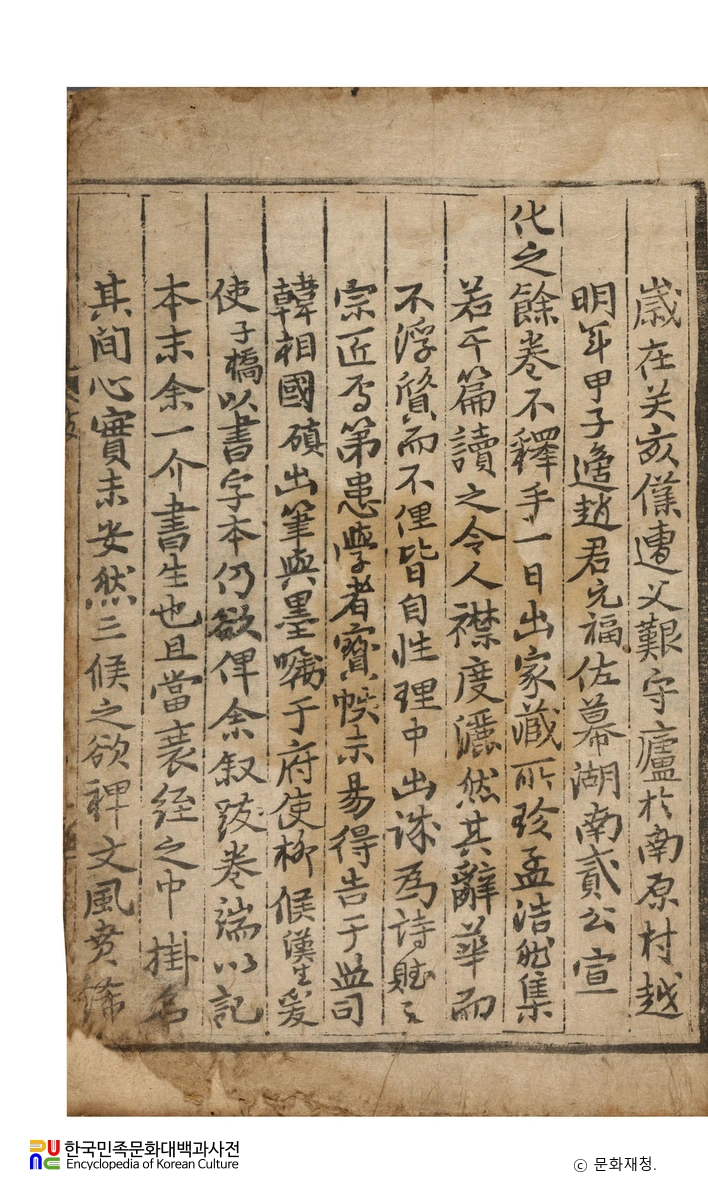 歲在癸亥僕遭父艱守廬於南原村越
明年甲子適趙君元福佐幕湖南貳公宣
化之餘卷不釋手一日出家藏所珍孟浩然集
若干篇讀之令人襟度灑然其辭華而
不浮質而不俚皆自性理中出誠爲詩賦之
宗匠焉第患學者寶帙未易得告于監司
韓相國碩出筆與墨囑于府使柳候漢生爰
使子橋以書字本仍欲俾余叙跋卷端以記
本末余一介書生也且當衰絰之中掛名
其間心實未安然三候之欲裨文風賁
한국민족문화대백과사전
Encyclopedia of Korean Culture
ⓒ 문화재청.